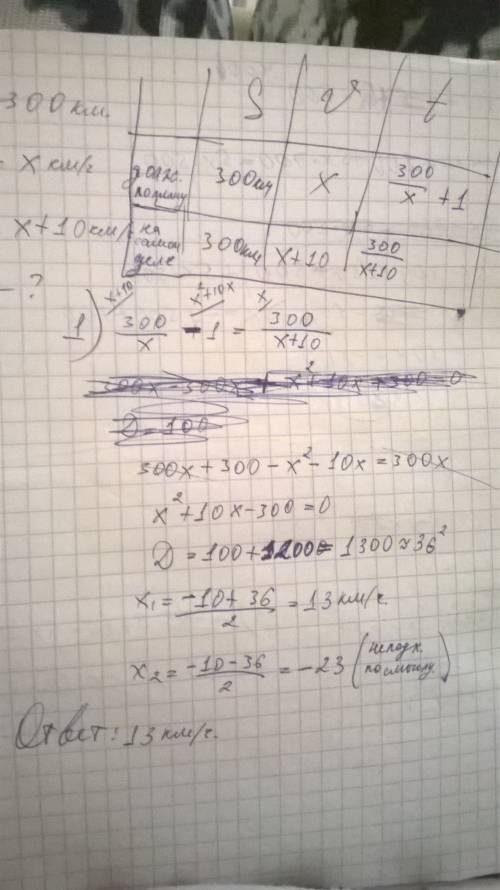 S V t
300 км.
x км/ч долж. по плану 300км x 300/x + 1
x+10 км/ч на самом деле 300км x+10 300/(x+10)
- ?
x+10 x²+10x x
1) 300/x - 1 = 300/(x+10)
D = 100
300x + 300 - x² - 10x = 300x
x² + 10x - 300 = 0
D = 100 + 1200 = 1300 ≈ 36²
x₁ = (-10 + 36)/2 = 13 км/ч.
x₂ = (-10 - 36)/2 = -23 (не подх. по смыслу.)
Ответ: 13 км/ч.